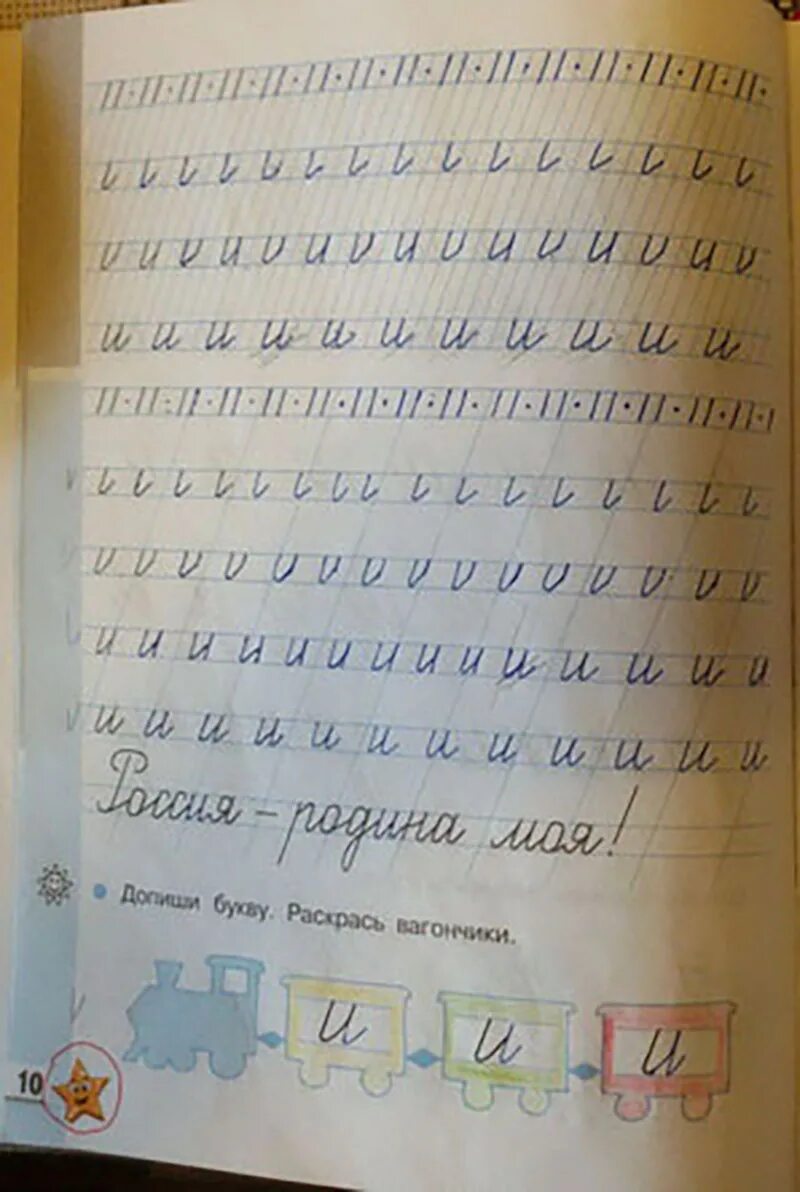 и и и и и и и и и и и
и и и и и и и и и и и и и и
и и и и и и и и и и и и
Россия – родина моя!
Допиши букву. Раскрась вагончики.
и и и
10